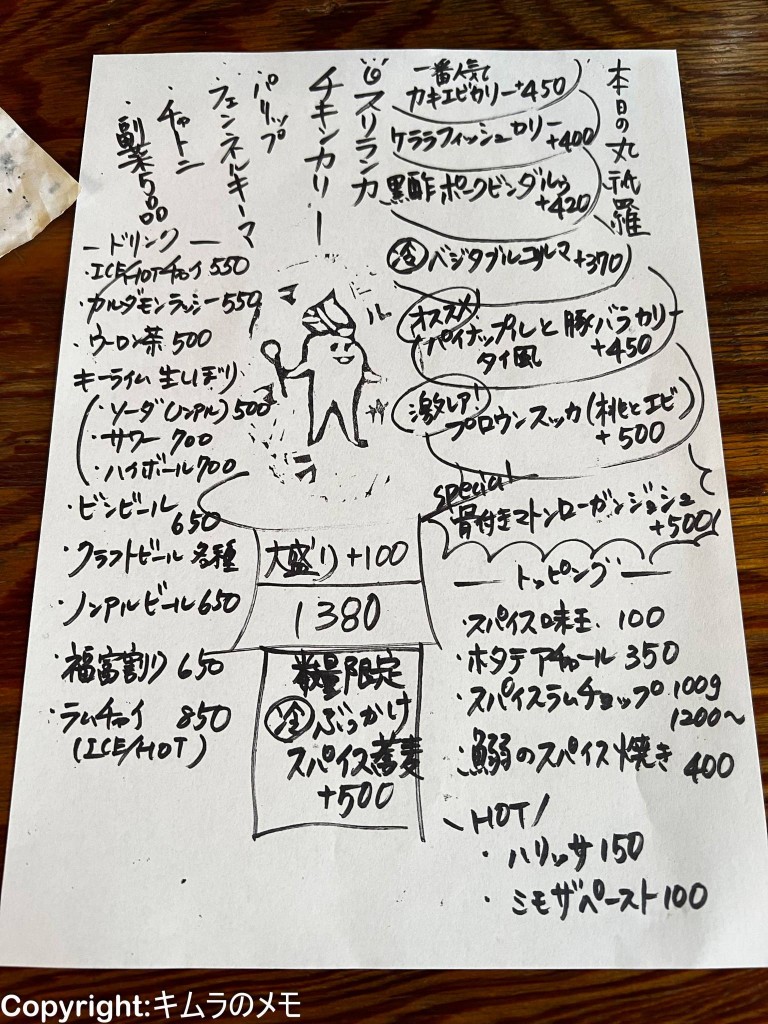 本日の丸沈羅
一番人気で
カキエビカリー+450
ケララフィッシュカリー
+400
黒酢ポークビンダルゥ
+420
冷 バジタブルコルマ+370
オススメ
パイナップルと豚バラカリー
タイ風
+450
激レア!
プロウンスッカ(桃とエビ)
+500
special
骨付きマトンローガンジョシュ
+500!
スリランカ
チキンカリー
・パリップ
・フェンネルキーマ
・チャトニ
・副菜5品
マ
ニ
ル
ラ
ードリンクー
・ICE/HOTチャイ 550
・カルダモンラッシー 550
・ウーロン茶 500
キーライム生しぼり
・ソーダ(ノンアル) 500
・サワー 700
・ハイボール 700
・ビンビール
650
・クラフトビール 各種
・ノンアルビール 650
・福富割り 650
・ラムチャイ 850
(ICE/HOT)
大盛り+100
1380
数量限定
冷 ぶっかけ
スパイス蕎麦
+500
ートッピングー
・スパイス味玉 100
・ホタテアチャール 350
・スパイスラムチョップ 100g
1200〜
・鰯のスパイス焼き 400
HOT/
・ハリッサ 150
・ミモザペースト 100
Copyright:キムラのメモ